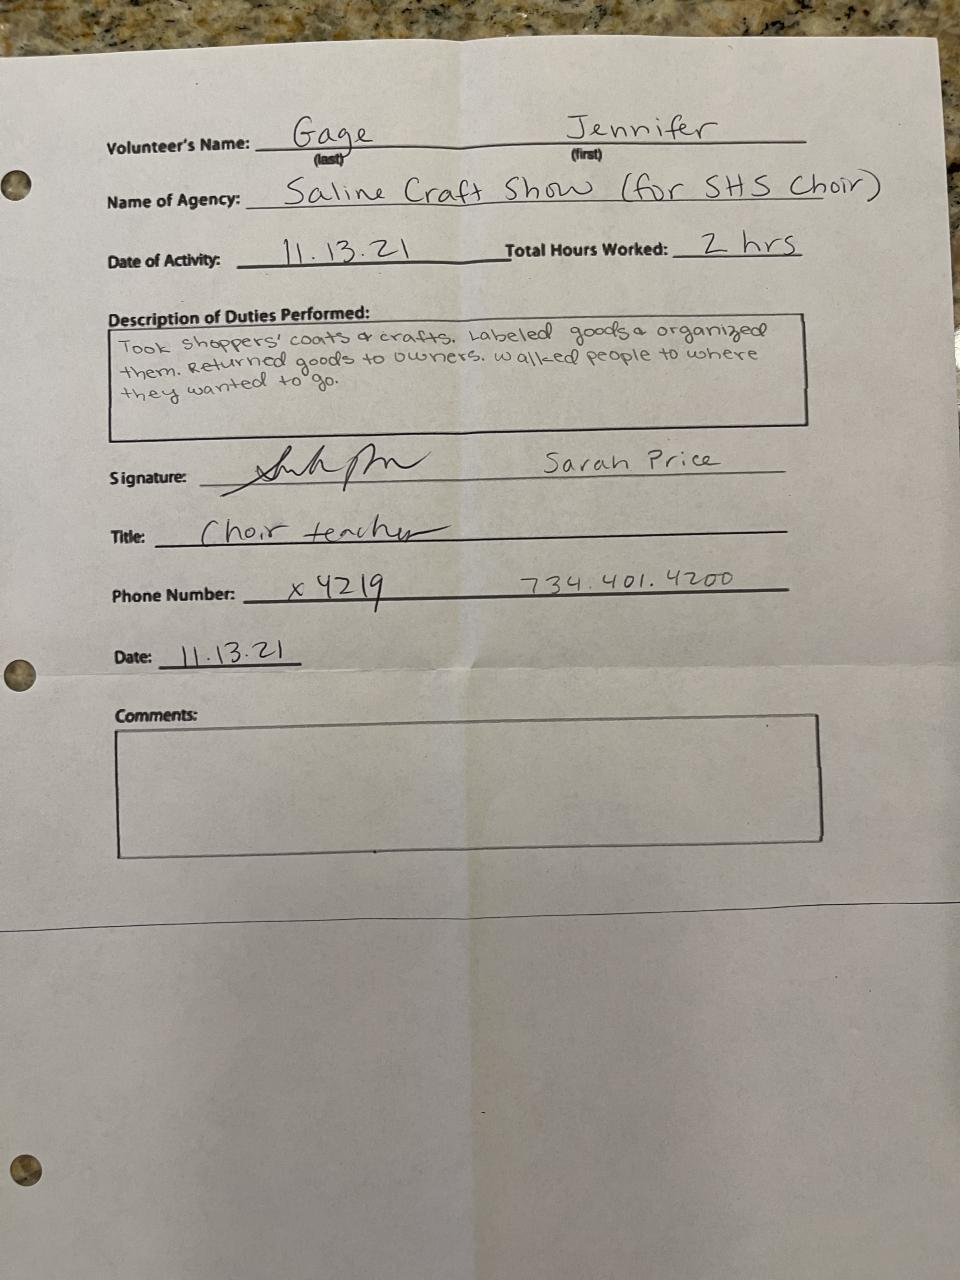 Volunteer's Name: Gage Jennifer
(last) (first)
Name of Agency: Saline Craft Show (for SHS Choir)
Date of Activity: 11.13.21 Total Hours Worked: 2 hrs
Description of Duties Performed:
Took shoppers' coats & crafts. Labeled goods & organized
them. Returned goods to owners. Walked people to where
they wanted to go.
Signature: Sarah Price
Title: Choir teacher
Phone Number: x 4219 734.401.4200
Date: 11.13.21
Comments: